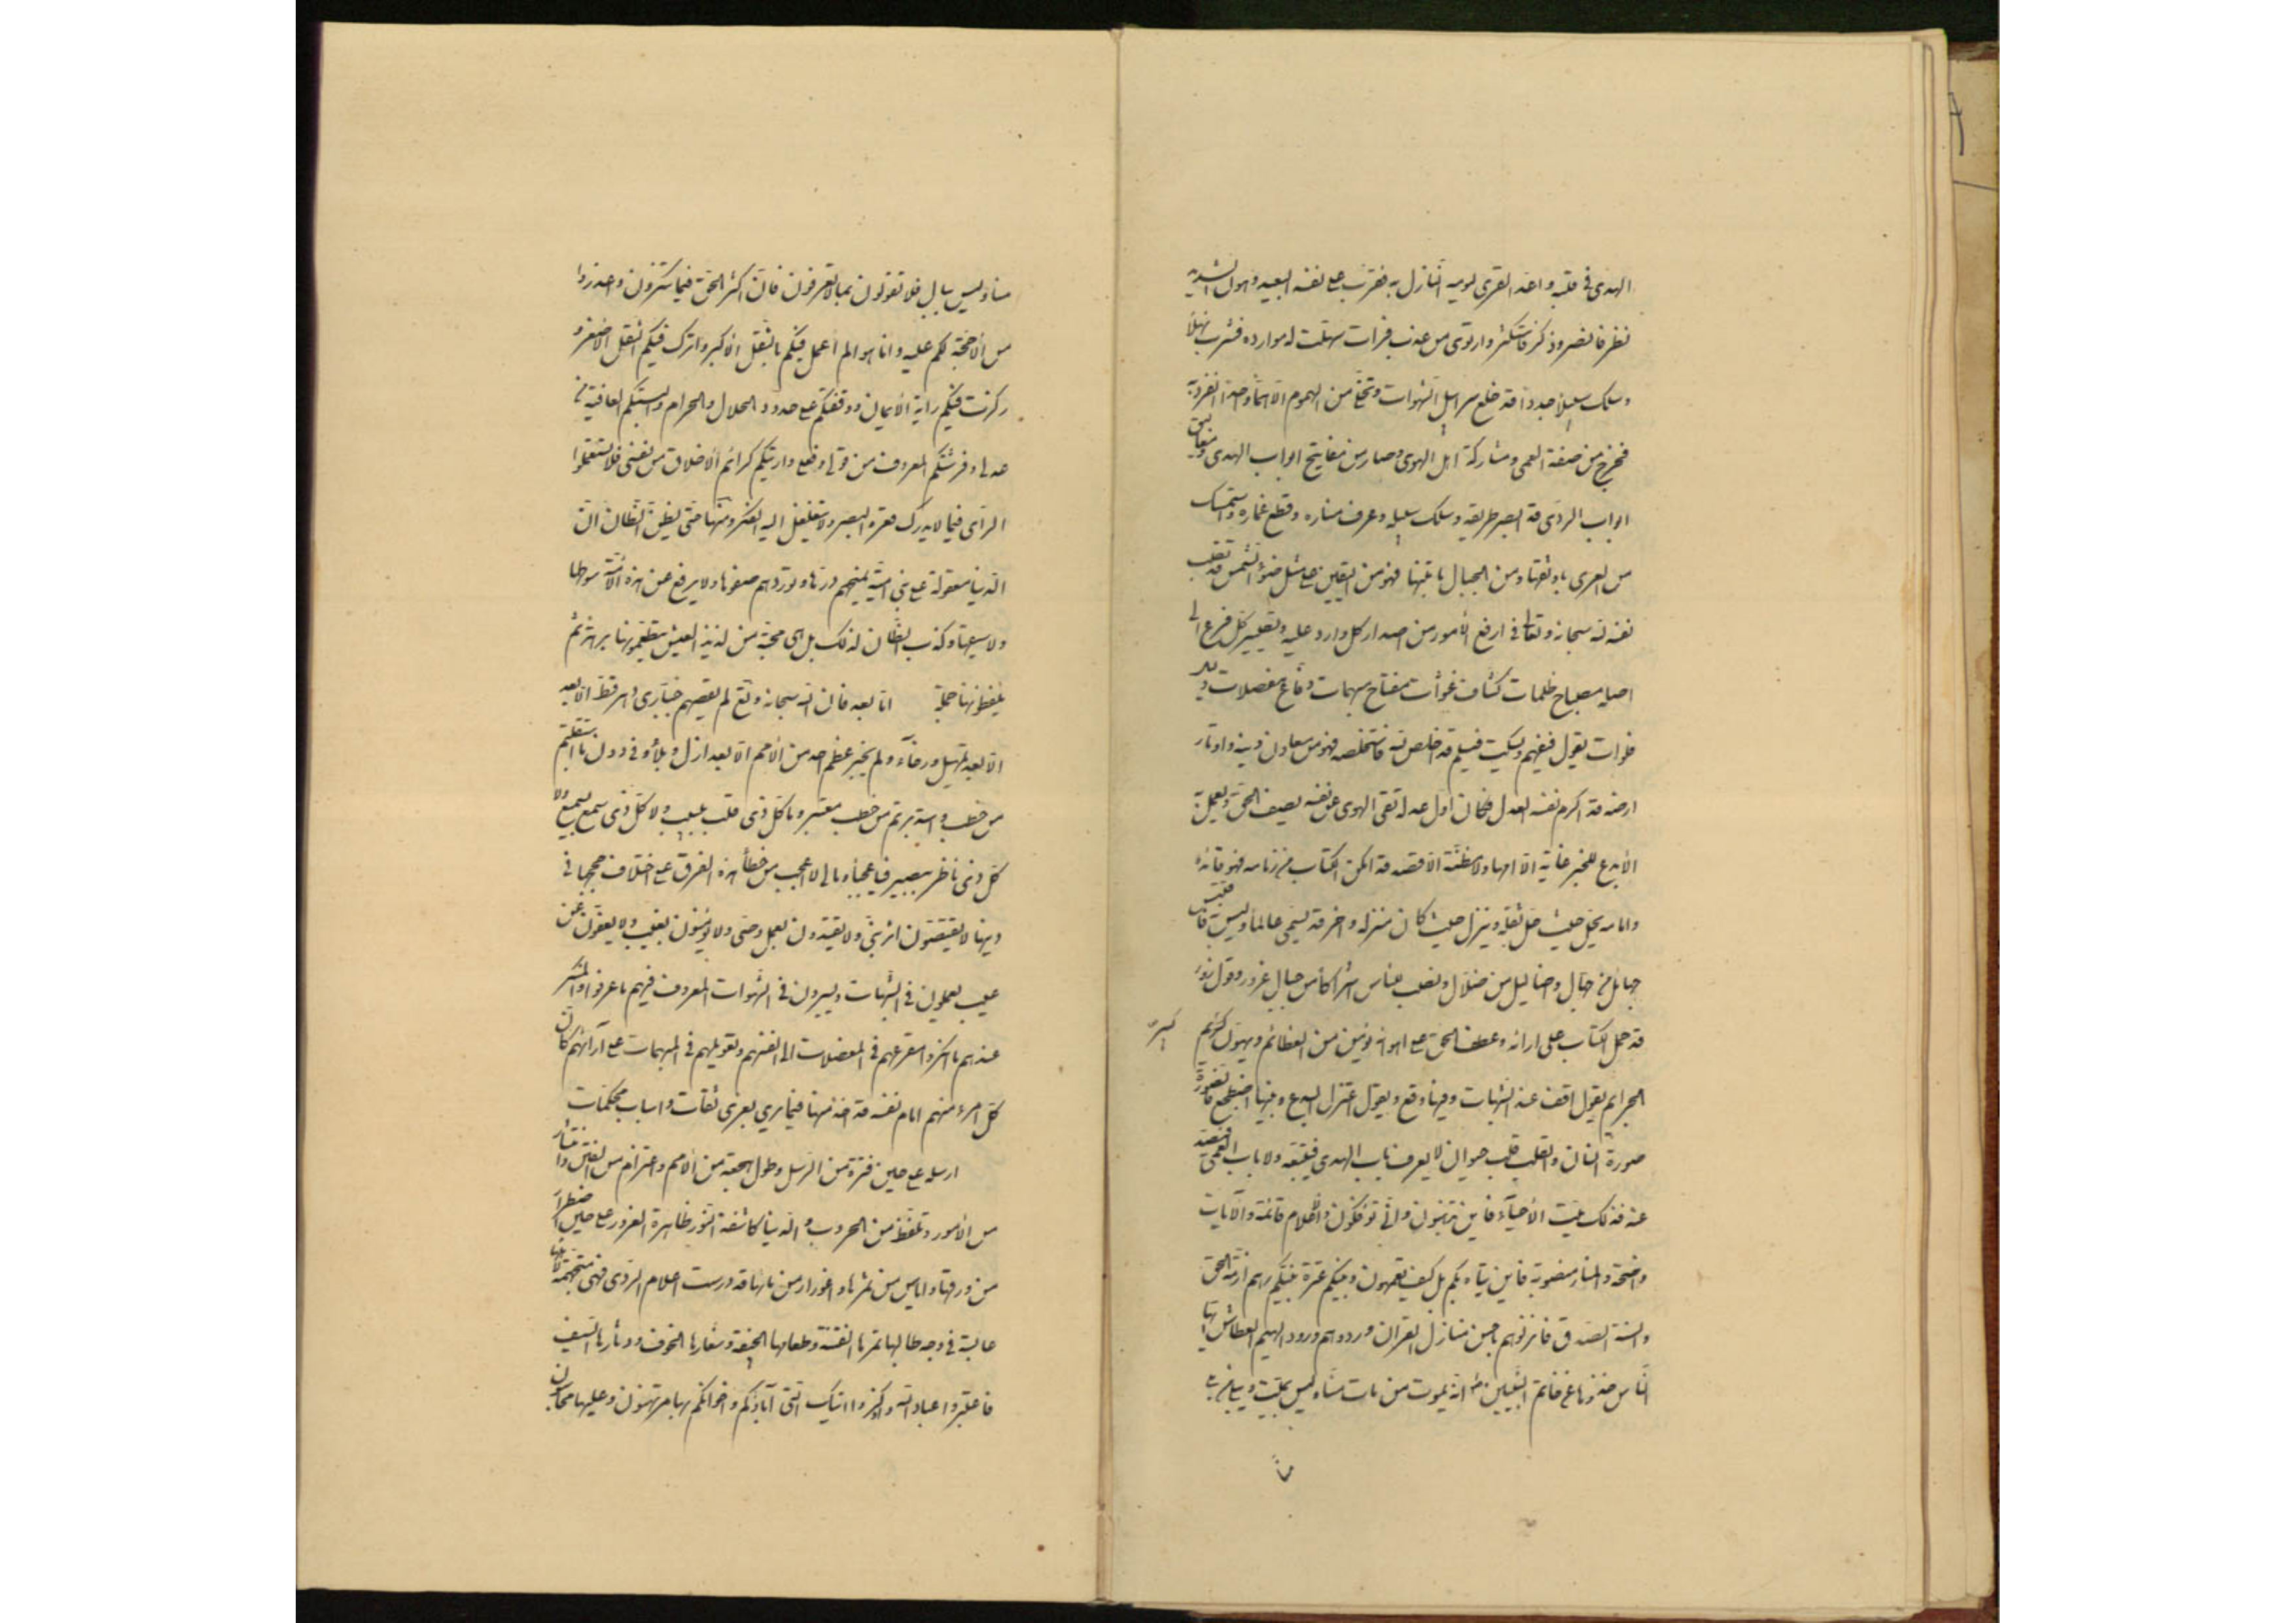 الهدى فی قلبه واعد القرى لیومه النازل به فقرّب علی نفسه البعید وهون الشدید
نظر فابصر وذکر فاستکثر وارتوى من عذب فرات سهلت له موارده فشرب نهلاً
وسلک سبیلاً جدداً قد خلع سرابیل الشهوات وتخلی من الهموم الا همّاً واحداً انفرد به
فخرج من صفة العمى ومشارکة اهل الهوى وصار من مفاتیح ابواب الهدى ومغالیق
ابواب الردى قد ابصر طریقه وسلک سبیله وعرف مناره وقطع غماره واستمسک
من العرى باوثقها ومن الحبال بامتنها فهو من الیقین علی مثل ضوء الشمس قد نصب
نفسه لله سبحانه وتعالى فی ارفع الأمور من اصدار کل وارد علیه وتصییر کل فرع الى
اصله مصباح ظلمات کشاف غشوات مفتاح مبهمات دفاع معضلات دلیل
فلوات یقول فیفهم ویسکت فیسلم قد اخلص لله فاستخلصه فهو من معادن دینه واوتاد
ارضه قد الزم نفسه العدل فکان اول عدله نفی الهوى عن نفسه یصف الحق ویعمل به
لا یدع للخیر غایة الا امها ولا مظنّة الا قصدها قد امکن الکتاب من زمامه فهو قائده
وامامه یحلّ حیث حلّ ثقله وینزل حیث کان منزله وآخر قد تسمى عالماً ولیس به فاقتبس
جهائل من جهال واضالیل من ضلال ونصب للناس اشراکا من حبال غرور وقول زور
قد حمل الکتاب على ارائه وعطف الحق علی اهوائه یؤمن من العظائم ویهون کبیر
الجرایم یقول اقف عند الشبهات وفیها وقع ویقول اعتزل البدع وبینها اضطجع فالصورة
صورة انسان والقلب قلب حیوان لا یعرف باب الهدى فیتبعه ولا باب العمى فیصد
عنه فذلک میّت الأحیآء فاین تذهبون وانى تؤفکون والأعلام قائمة والآیات
واضحة والمنار منصوبة فاین یتاه بکم بل کیف تعمهون وبینکم عترة نبیکم وهم ازمة الحق
والسنة الصدق فانزلوهم باحسن منازل القرآن وردوهم ورود الهیم العطاش ایها
الناس خذوها عن خاتم النبیین ص انه یموت من مات منا ولیس بمیّت ویبلى من بلى
منا ولیس ببال فلا تقولوا بما لا تعرفون فان اکثر الحق فیما تنکرون واعذروا
من لا حجّة لکم علیه وانا هو الم اعمل فیکم بالثقل الأکبر واترک فیکم الثقل الأصغر و
رکزت فیکم رایة الأیمان ووقفتکم علی حدود الحلال والحرام والبستکم العافیة من
عدلی وفرشتکم المعروف من قولی وفعلی واریتکم کرائم الأخلاق من نفسی فلا تستعملوا
الرأى فیما لا یدرک قعره البصر ولا تتغلغل الیه الفکر ومنها حتى یظن الظان ان
الدنیا معقولة علی بنی امیّة تمنحهم درها وتوردهم صفوها ولا یرفع عن هذه الأمّة سوطها
ولا سیفها وکذب الظان لذلک بل هی مجّة من لذیذ العیش یتطعمونها برهة ثم
یلفظونها جملة اما بعد فان الله سبحانه وتع لم یقصم جبّاری دهر قط الا بعد
الا بعد تمهیل ورخاء ولم یجبر عظم احد من الأمم الا بعد ازل وبلاء وفی دون ما استقبلتم
من خطب واستدبرتم من خطب معتبر وما کل ذی قلب بلبیب ولا کل ذی سمع بسمیع ولا
کل ذی ناظر ببصیر فیا عجباً ومالی لا اعجب من خطأ هذه الفرق علی اختلاف حججها فی
دینها لا یقتصون اثر نبیّ ولا یقتدون بعمل وصى ولا یؤمنون بغیب ولا یعفون عن
عیب یعملون فی الشبهات ویسیرون فی الشهوات المعروف فیهم ما عرفوا والمنکر
عندهم ما انکروا مفزعهم فی المعضلات الى انفسهم وتعویلهم فی المبهمات علی آرائهم کان
کل امرء منهم امام نفسه قد اخذ منها فیما یرى بعرى ثقات واسباب محکمات
ارسله علی حین فترة من الرسل وطول هجعة من الأمم واعتزام من الفتن وانتشار
من الأمور وتلظّ من الحروب والدنیا کاسفة النور ظاهرة الغرور علی حین اصفرار
من ورقها وایاس من ثمرها واغورار من مائها قد درست اعلام الردى فهی متجهمة لأهلها
عابسة فی وجه طالبها ثمرها الفتنة وطعامها الجیفة وشعارها الخوف ودثارها السیف
فاعتبروا عباد الله واذکروا تیک التی آباؤکم واخوانکم بها مرتهنون وعلیها محاسبون